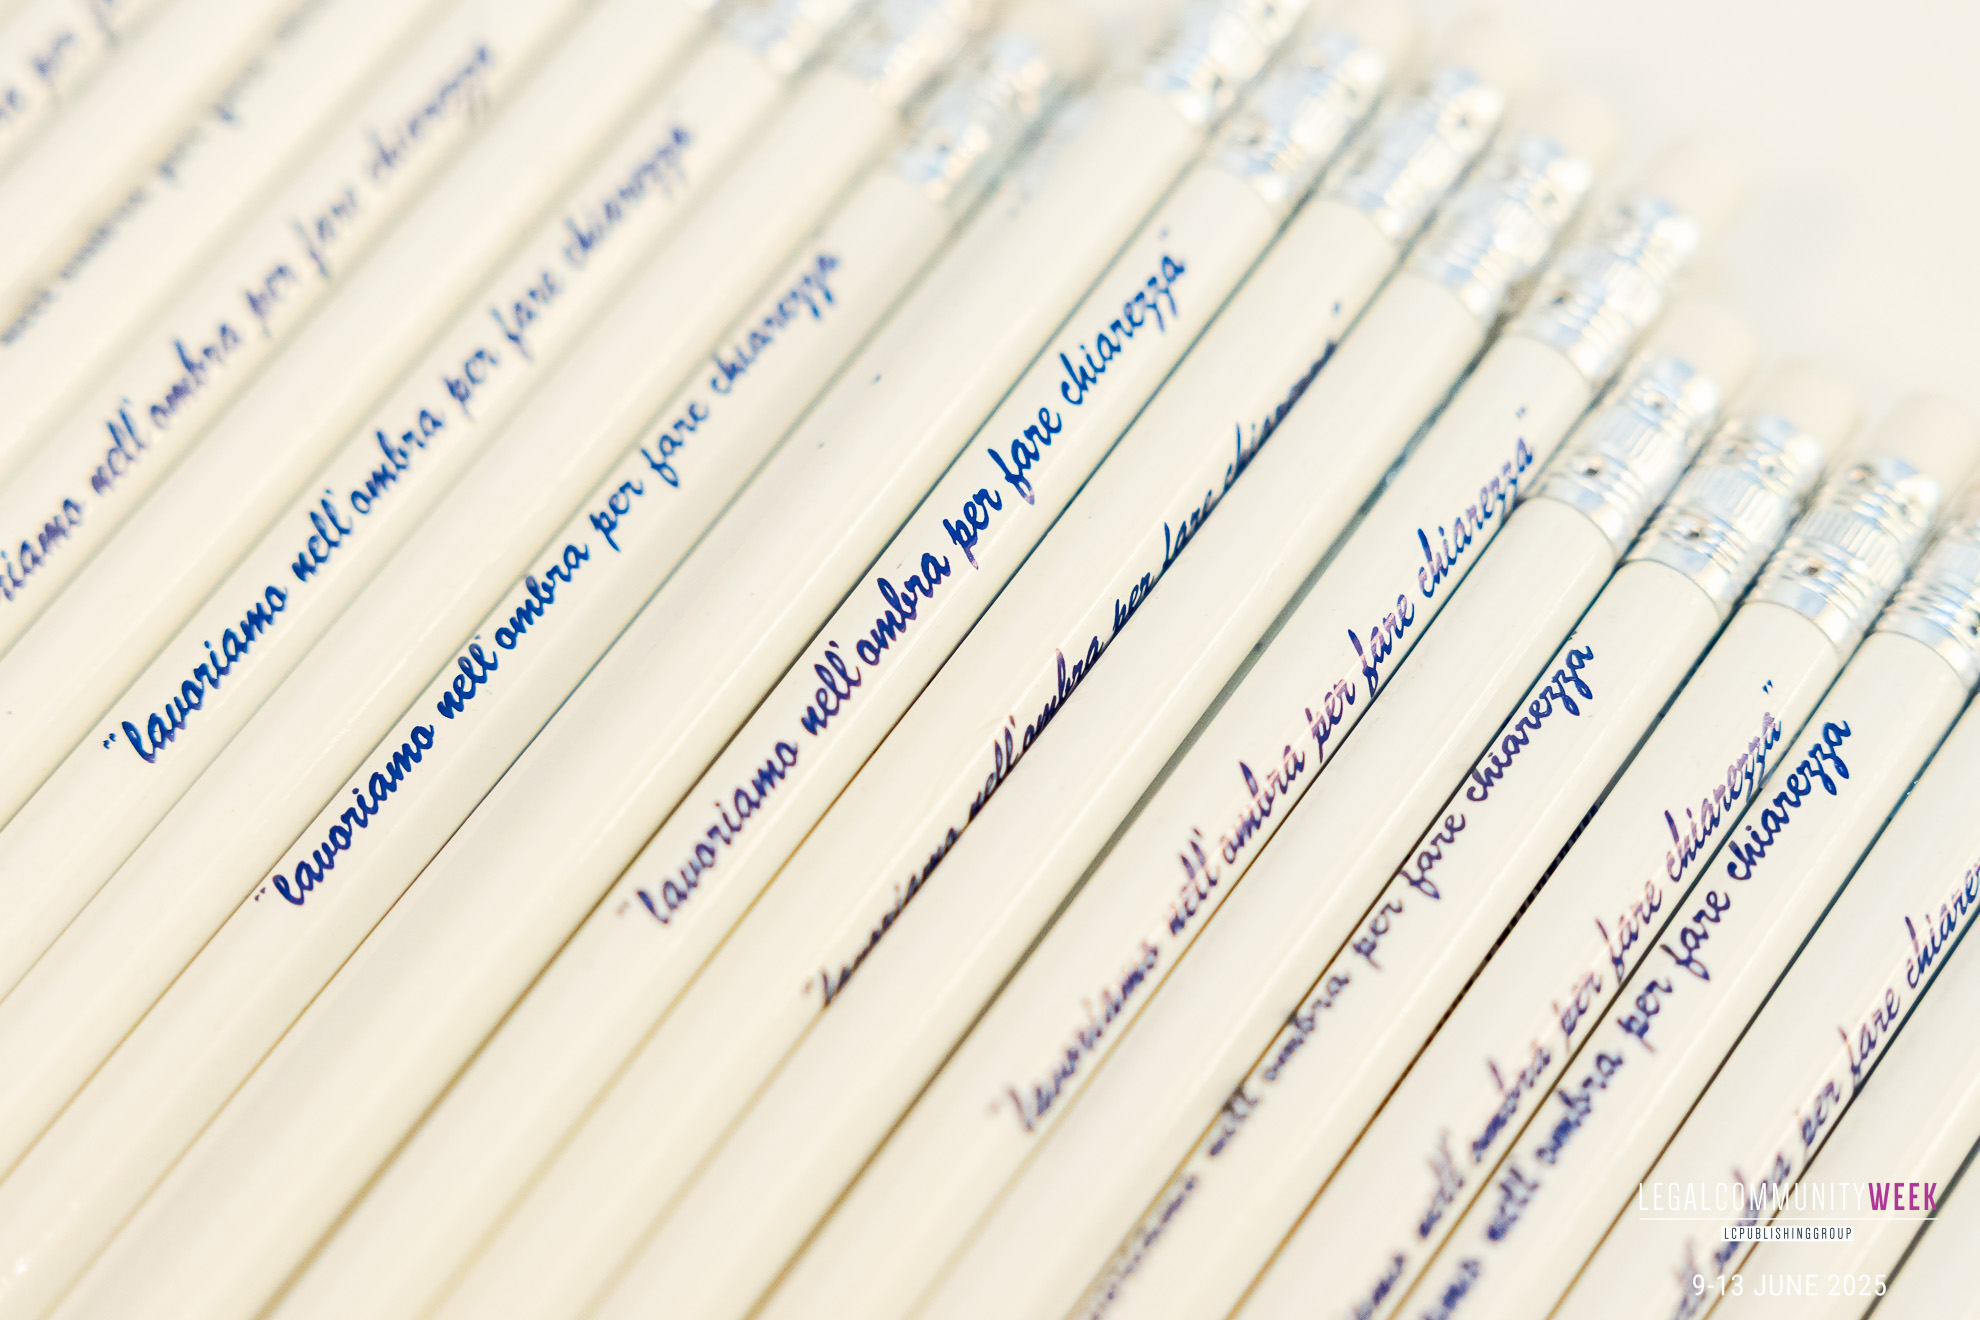 nell'ombra per fare chiarezza
"lavoriamo nell'ombra per fare chiarezza
"lavoriamo nell'ombra per fare chiarezza
"lavoriamo nell'ombra per fare chiarezza"
"lavoriamo nell'ombra per fare chiarezza"
"lavoriamo nell'ombra per fare chiarezza"
nell'ombra per fare chiarezza
nell'ombra per fare chiarezza"
nell'ombra per fare chiarezza
per fare
LEGALCOMMUNITYWEEK
LCPUBLISHINGGROUP
9-13 JUNE 2025